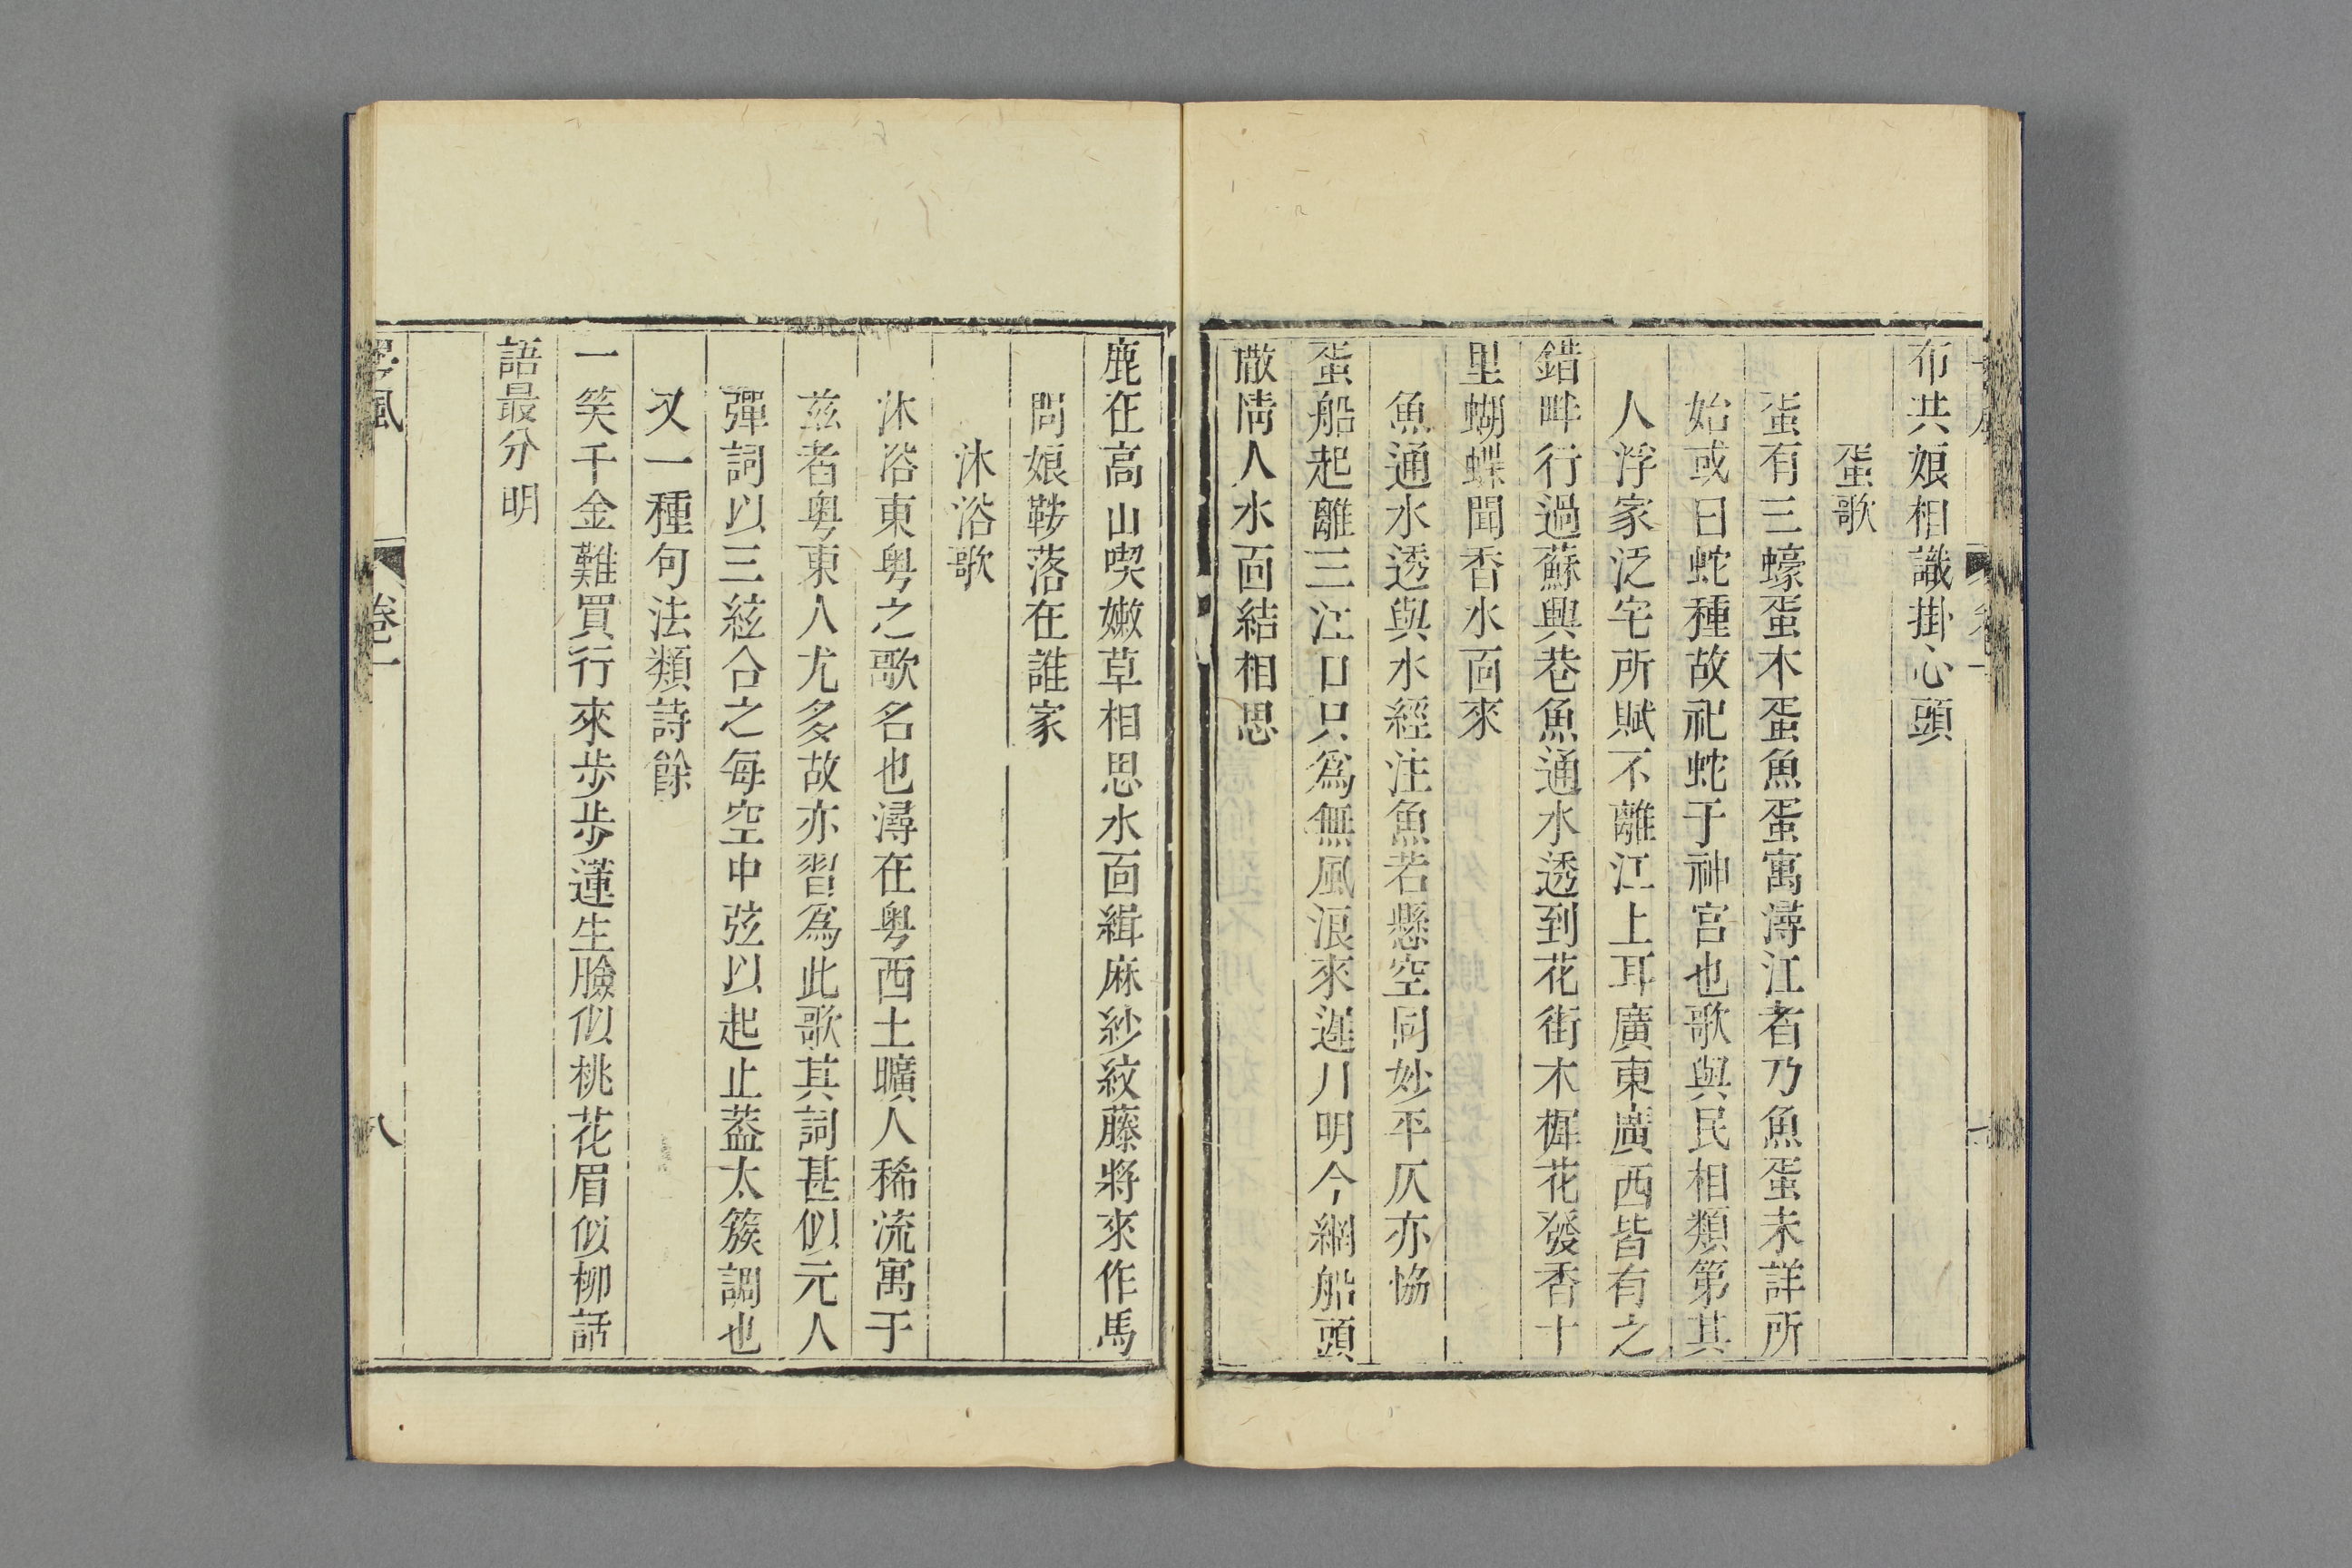 布共娘相識掛心頭
蛋歌
蛋有三蠔蛋木蛋魚蛋寓潯江者乃魚蛋未詳所
始或曰蛇種故祀蛇于神宮也歌與民相類第其
人浮家泛宅所賦不離江上耳廣東廣西皆有之
錯畔行過蘇興巷魚通水透到花街木樨花發香十
里蝴蝶聞香水面來
魚通水透與水經注魚若懸空同妙平仄亦恊
蛋船起離三江口只為無風浪來遲月明今網船頭
撒情人水面結相思
鹿在高山喫嫩草相思水面緝麻紗紋藤將來作馬
問娘鞍落在誰家
沐浴歌
沐浴東粤之歌名也潯在粤西土曠人稀流寓于
茲者粤東人尤多故亦習為此歌其詞甚似元人
彈詞以三絃合之每空中弦以起止葢太簇調也
又一種句法類詩餘
一笑千金難買行來歩歩蓮生臉似桃花眉似柳話
語最分明
粤風
卷一
八